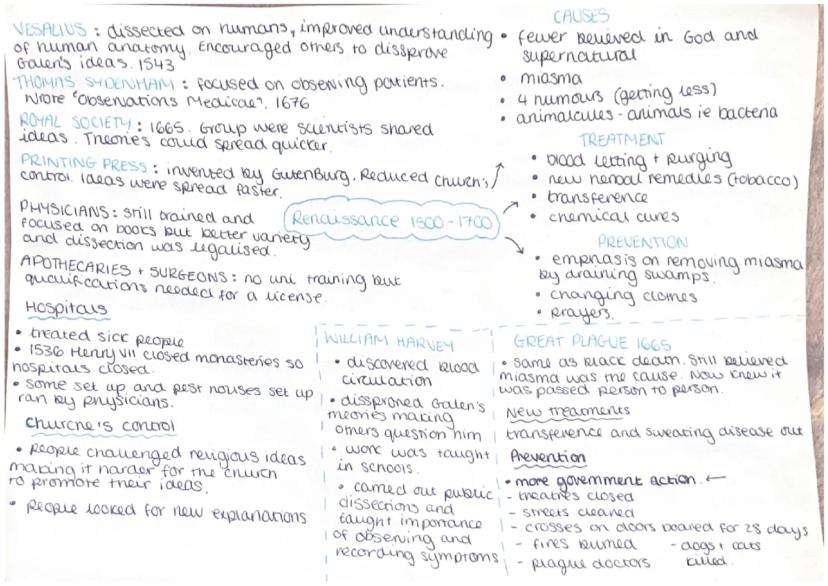 VESALIUS : dissected on humans, improved understanding
of human anatomy. Encouraged others to dissprove
Galen's ideas. 1543
THOMAS SYDENHAM : focused on observing patients.
Wrote "Observations Medicae". 1676
ROYAL SOCIETY : 1665. Group were scientists shared
ideas. Theories could spread quicker.
PRINTING PRESS : invented by Gutenburg. Reduced church's
control. Ideas were spread faster.
PHYSICIANS : still trained and
focused on books but better variety
and dissection was legalised.
APOTHECARIES + SURGEONS : no uni training but
qualifications needed for a license.
Renaissance 1500-1700
CAUSES
• fewer believed in God and
supernatural
• miasma
• 4 humours (getting less)
• animalcules - animals ie bacteria
TREATMENT
• blood letting + purging
• new herbal remedies (tobacco)
• transference
• chemical cures
PREVENTION
• emphasis on removing miasma
by draining swamps.
• changing clothes
• prayers.
Hospitals
• treated sick people
• 1536 Henry VII closed monasteries so
hospitals closed.
• some set up and pest houses set up
ran by physicians.
Churche's control
• People challenged religious ideas
making it harder for the church
to promote their ideas.
• People looked for new explanations
WILLIAM HARVEY
• discovered blood
circulation
• dissproned Galen's
theories making
others question him
• work was taught
in schools.
• carried out public
dissections and
taught importance
of observing and
recording symptoms
GREAT PLAGUE 1665
• same as black death. Still believed
miasma was the cause. Now knew it
was passed person to person.
New treatments
transference and sweating disease out
Prevention
• more government action. ←
- theatres closed
- streets cleaned
- crosses on doors boared for 28 days
- fires burned - dogs + cats
- plague doctors killed.